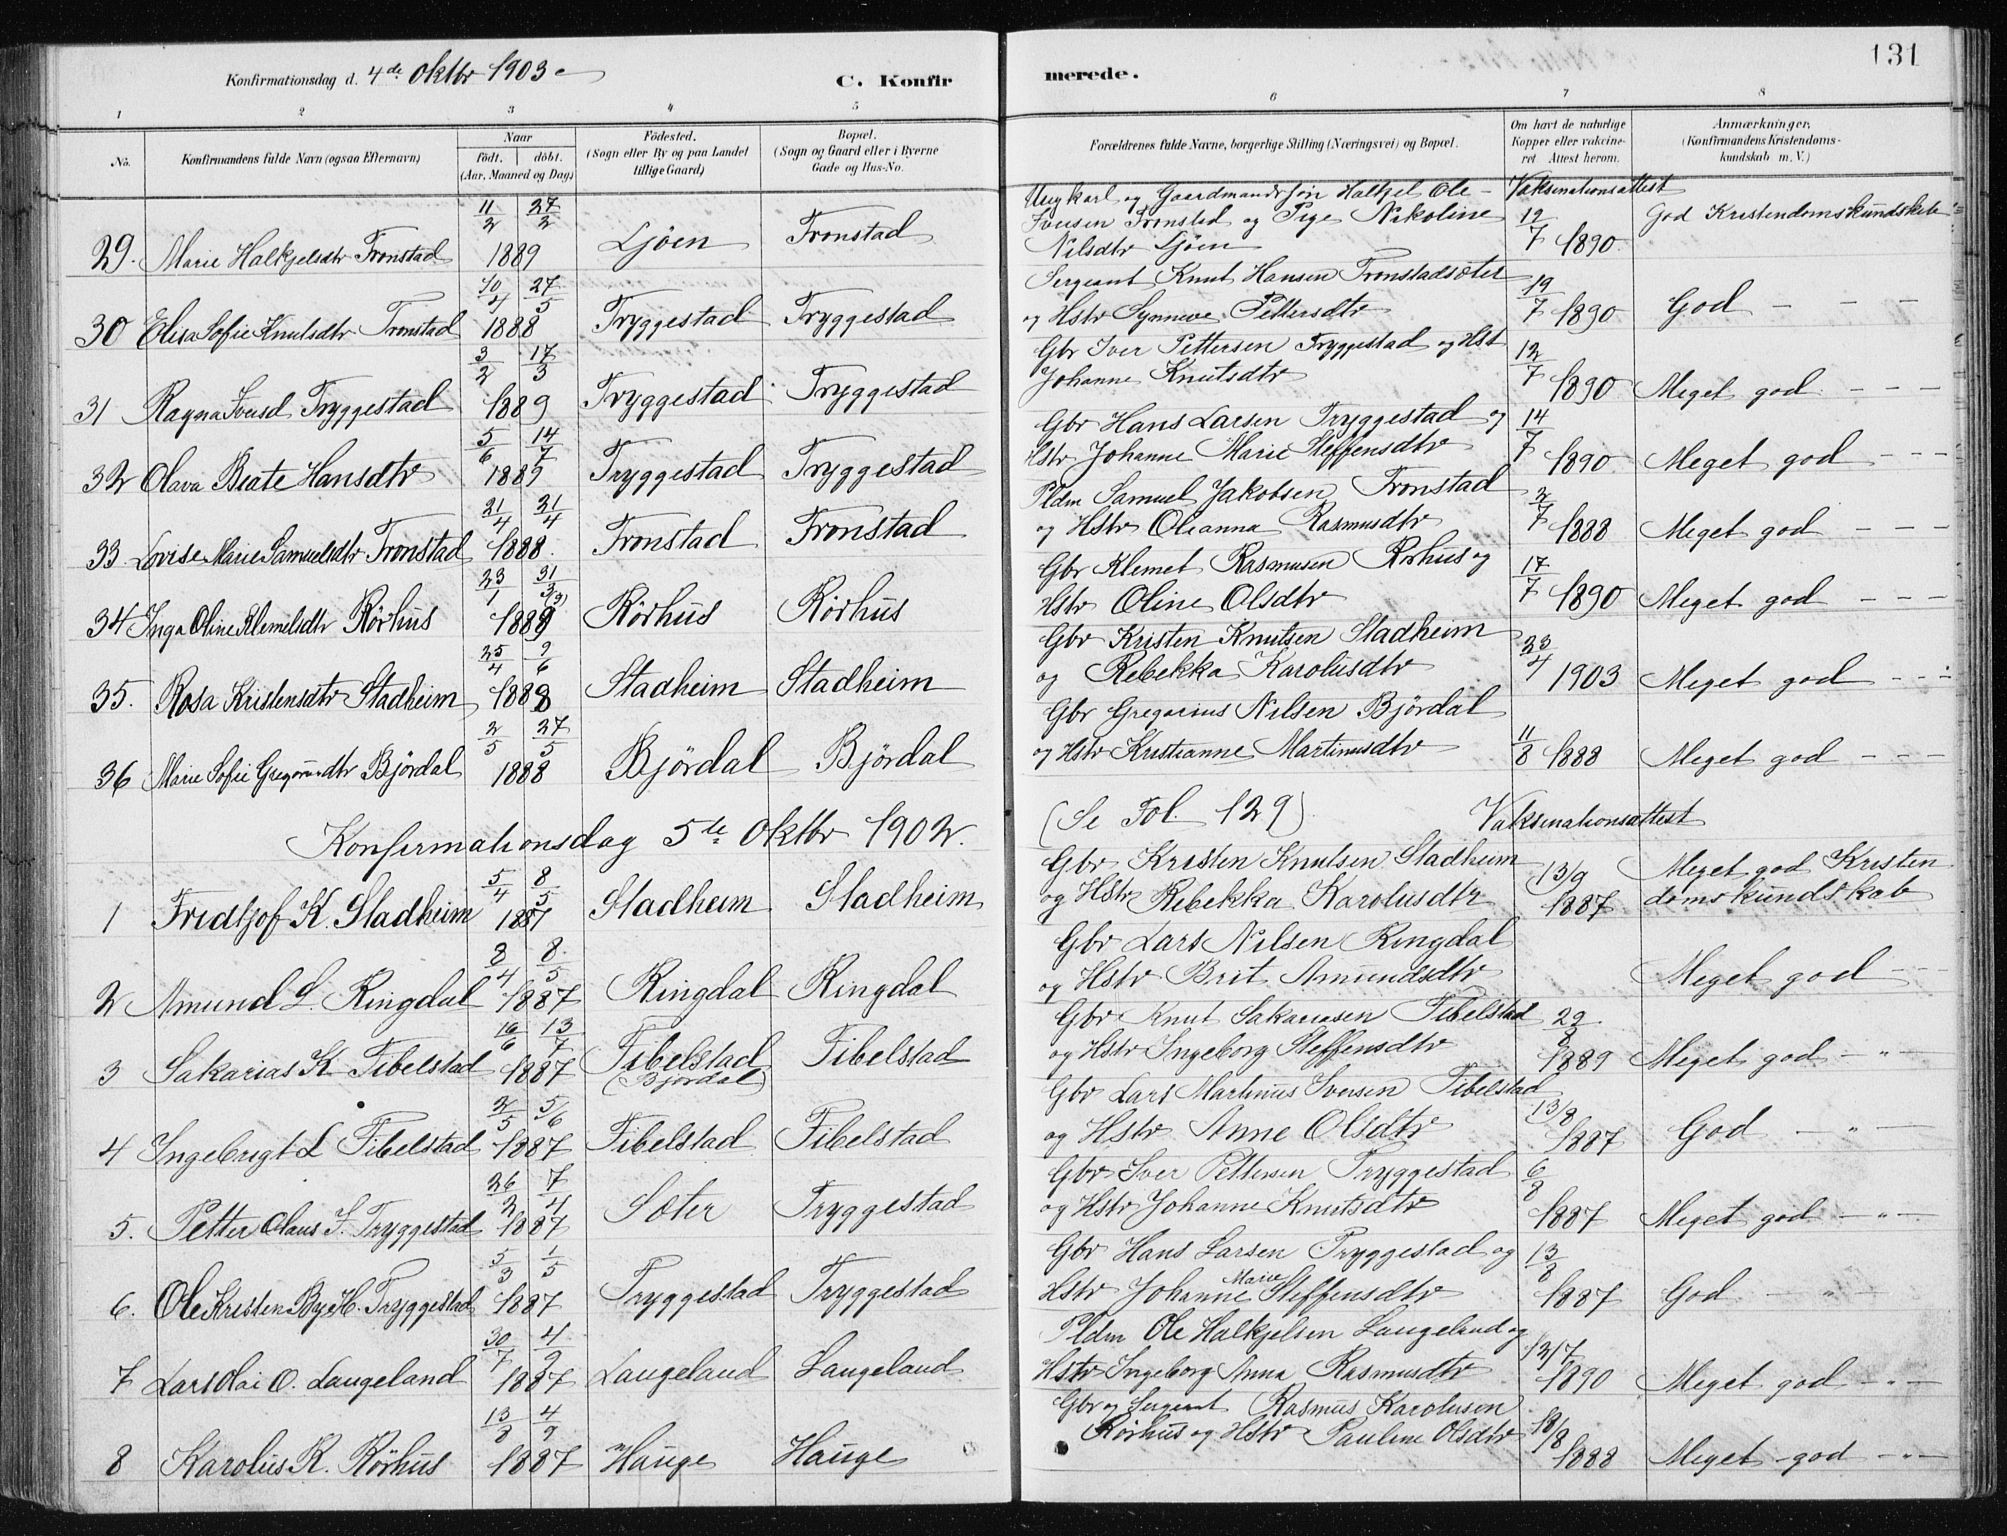 131
Konfirmationsdag d. 4de Oktbr 1903
C. Konfirmerede.
1 2 3 4 5 6 7 8
No. Konfirmandens fulde Navn (ogsaa Efternavn) Naar født. døbt. (Aar, Maaned og Dag) Fødested. (Sogn eller By og paa Landet tillige Gaard) Bopæl. (Sogn og Gaard eller i Byerne Gade og Hus-No. Forældrenes fulde Navne, borgerlige Stilling (Næringsvei) og Bopæl. Om havt de naturlige Kopper eller vakcineret Attest herom. Anmærkninger, (Konfirmandens Kristendomskundskab m. V.)
29. Marie Halkjelsdtr Tronstad 11/2 27/2 1889 Ljöen Tronstad Ungkarl og Gaardmandssön Halkjel Ole Iversen Tronstad og Pige Nikoline Nilsdtr Ljöen Vaksinationsattest 12/7 1890 God Kristendomskundskab
30 Elisa Sofie Knutsdtr Tronstad 10/4 27/5 1888 Tryggestad Tryggestad Sergeant Knut Hansen Tronstadsæter og Hstr Synneve Pettersdtr 19/7 1890 God — — —
31 Ragna Iversd Tryggestad 3/2 17/3 1889 Tryggestad Tryggestad Gbr Iver Pettersen Tryggestad og Hst Johanne Knutsdtr 12/7 1890 Meget god — — —
32 Olava Beate Hansdtr 5/6 14/7 1889 Tryggestad Tryggestad Gbr Hans Larsen Tryggestad og Hstr Johanne Marie Steffensdtr 14/7 1890 Meget god — — —
33 Lovise Marie Samuelsdtr Tronstad 21/4 21/4 1888. Tronstad Tronstad Pldm Samuel Jakobsen Tronstad og Hstr Olianna Rasmusdtr 2/7 1888 Meget god — — —
34 Inga Oline Klemetsdtr Rörhus 23/1 31/3 1889 Rörhus Rörhus Gbr Klemet Rasmusen Rörhus og Hstr Oline Olsdtr 17/7 1890 Meget god — — —
35. Rosa Kristensdtr Stadheim 25/4 9/6 1889 Stadheim Stadheim Gbr Kristen Knutsen Stadheim og Rebekka Karolusdtr 23/4 1903 Meget god — — —
36 Marie Sofie Gregoriusdtr Björdal 2/5 27/5 1888 Björdal Björdal Gbr Gregorius Nilsen Björdal og Hstr Kristianne Martinusdtr 11/8 1888 Meget god — — —
Konfirmationsdag 5te Oktbr 1902. (Se Fol. 129) Vaksinationsattest
1 Fredtjof K. Stadheim 5/4 8/5 1887 Stadheim Stadheim Gbr Kristen Knutsen Stadheim og Hstr Rebekka Karolusdtr 13/9 1887 Meget god Kristendomskundskab
2 Amund L. Ringdal 8/4 8/5 1887 Ringdal Ringdal Gbr Lars Nilsen Ringdal og Hstr Brit Amundsdtr Meget god — —
3 Sakarias K Fibelstad 16/6 13/7 1887 Fibelstad (Björdal) Fibelstad Gbr Knut Sakariasen Fibelstad og Hstr Ingeborg Steffensdtr 22/8 1889 Meget god — " —
4 Ingebrigt L Fibelstad 2/5 5/6 1887 Fibelstad Fibelstad Gbr Lars Martinus Iversen Fibelstad og Hstr Anne Olsdtr 13/8 1887 God — " —
5. Petter Olaus I. Tryggestad 26/2 7/4 1887 Sæter Tryggestad Gbr Iver Pettersen Tryggestad og Hstr Johanne Knutsdtr 6/8 1887 Meget god — " —
6. Ole Kristen H. Tryggestad 5/3 1/5 1887 Tryggestad Tryggestad Gbr Hans Larsen Tryggestad og Hstr Johanne Marie Steffensdtr 13/8 1887 God — " —
7 Lars Olai O. Langeland 30/7 4/9 1887 Langeland Langeland Pldm Ole Halkjelsen Langeland og Hstr Ingeborg Anna Rasmusdtr 12/7 1890 Meget god — " —
8 Karolus R. Rörhus 13/8 4/9 1887 Hauge Hauge Gbr og Sergeant Rasmus Karolusen Rörhus og Hstr Pauline Olsdtr 18/8 1888 Meget god — " —